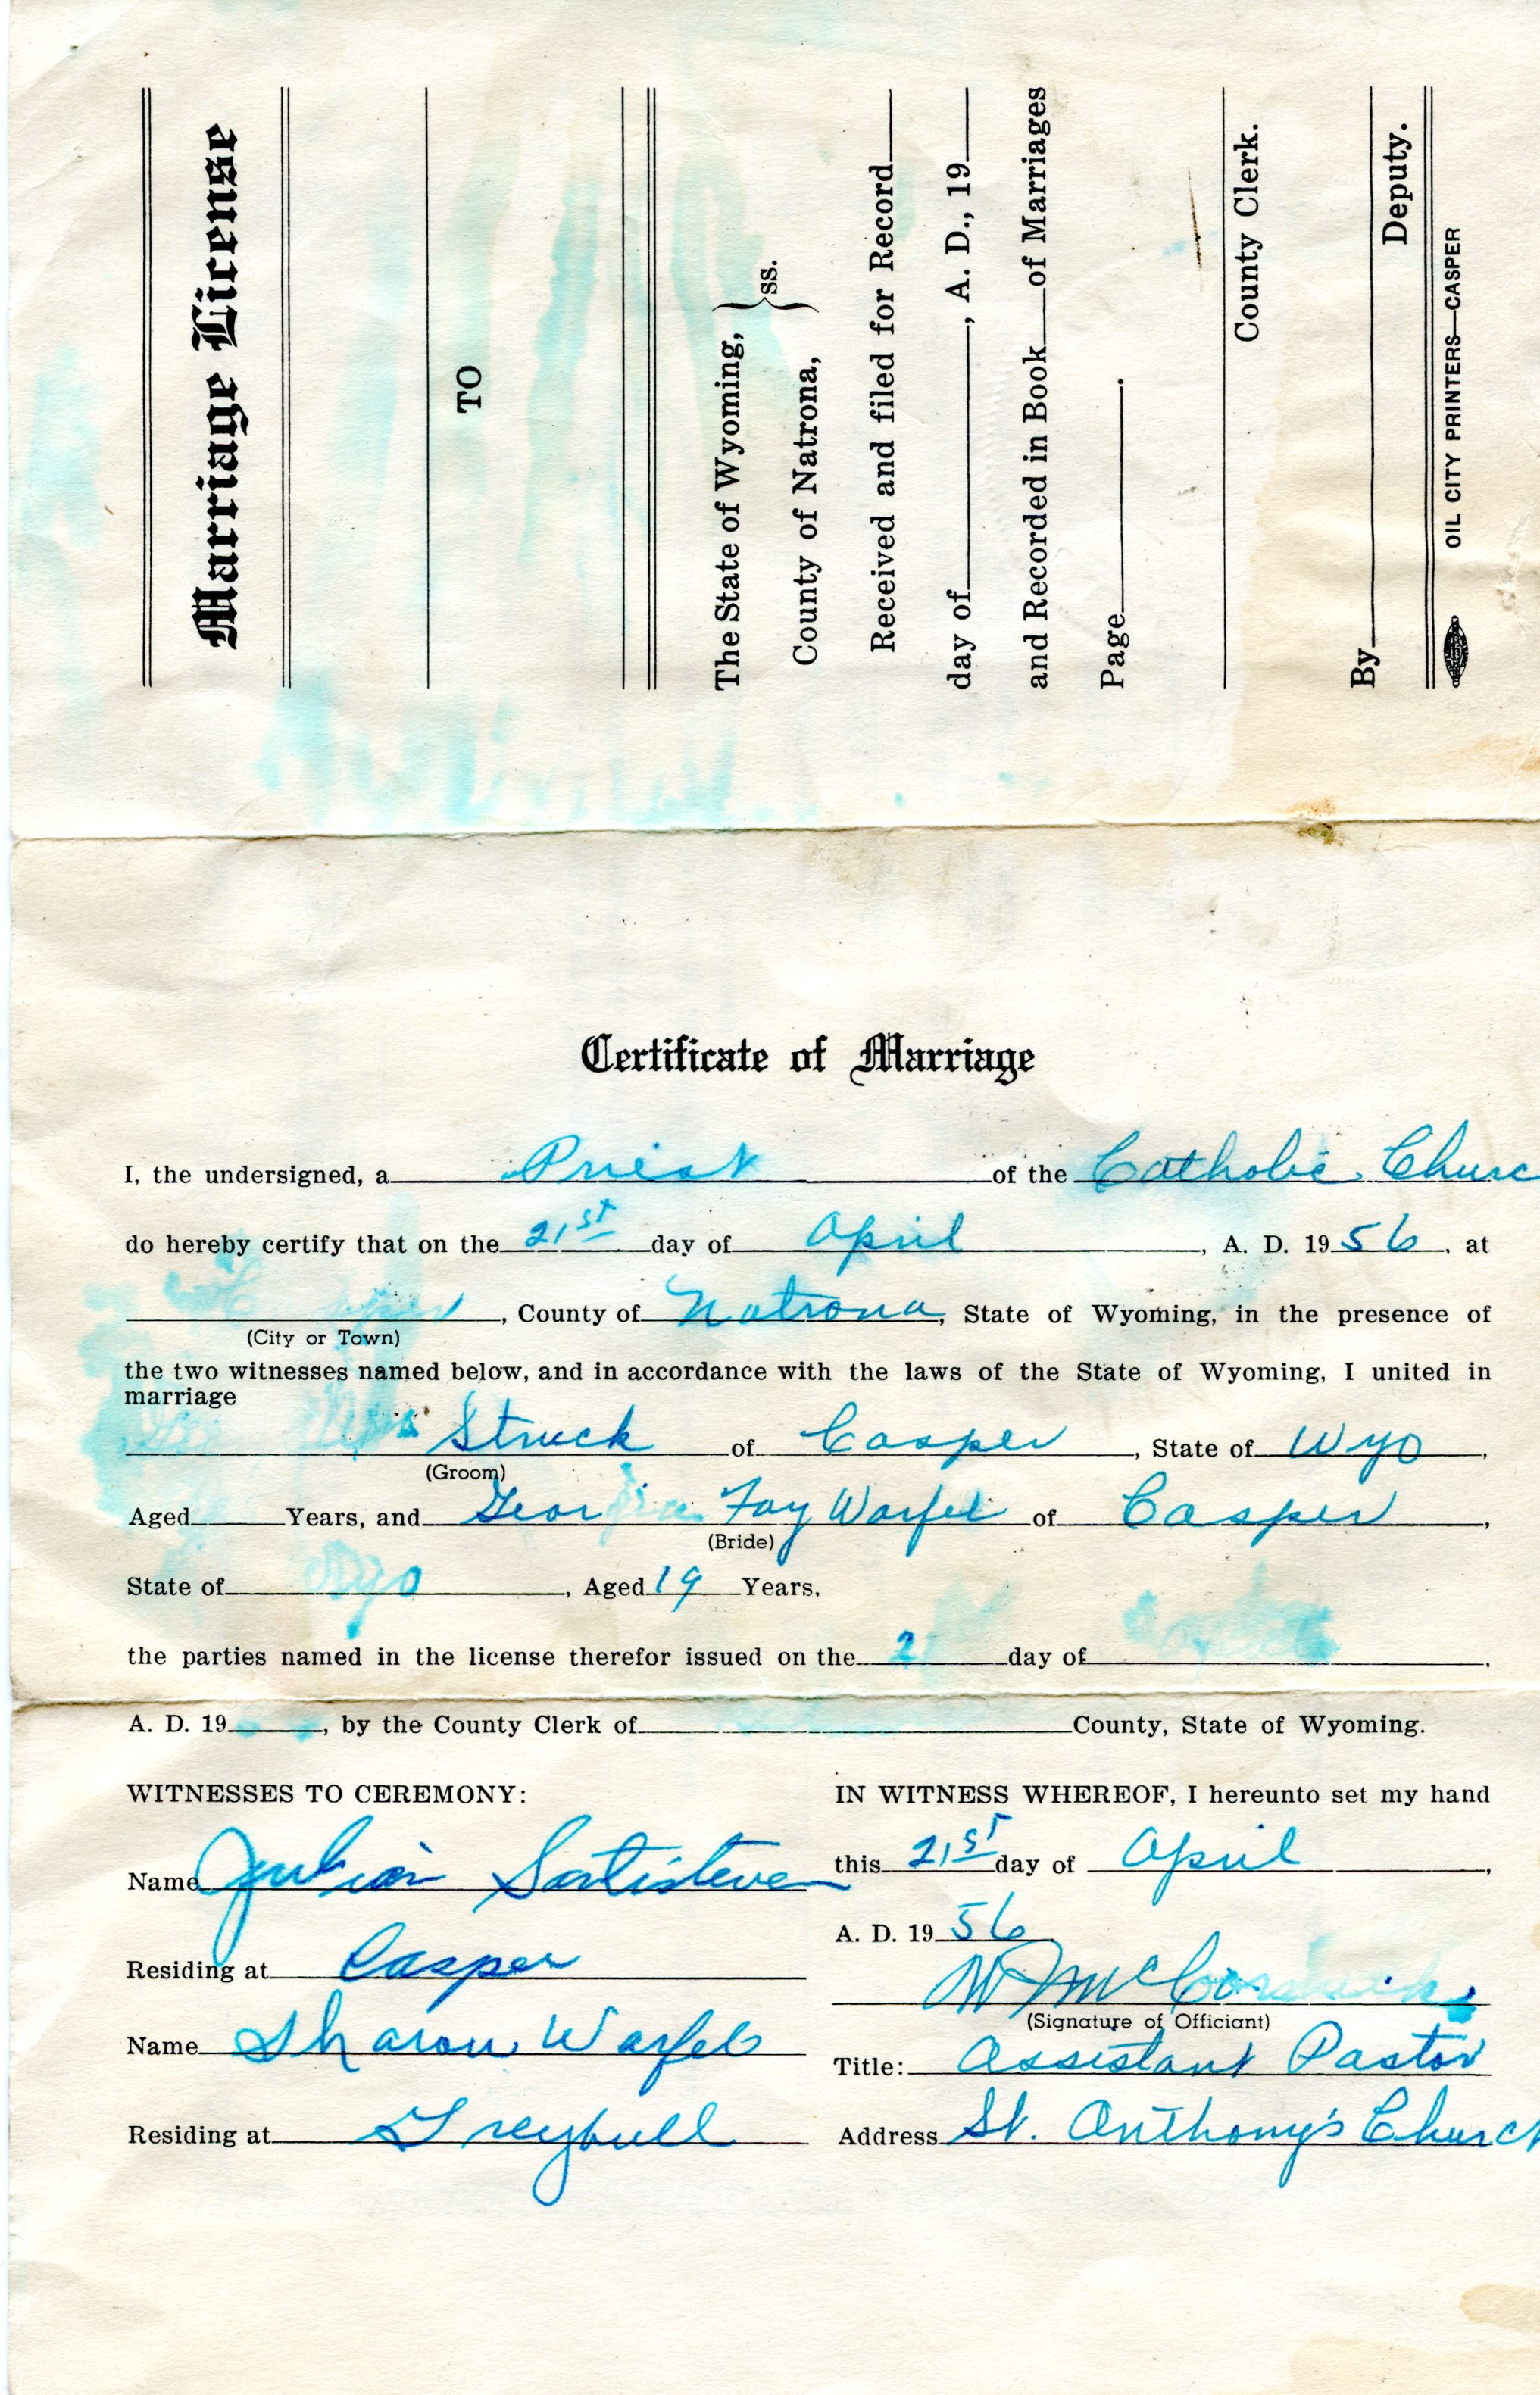 Marriage License
TO
The State of Wyoming, } ss.
County of Natrona,
Received and filed for Record
day of , A. D., 19
and Recorded in Book of Marriages
Page .
County Clerk.
By
Deputy.
OIL CITY PRINTERS—CASPER
Certificate of Marriage
I, the undersigned, a Priest of the Catholic Churc
do hereby certify that on the 21st day of April , A. D. 19 56 , at
, County of Natrona, State of Wyoming, in the presence of
(City or Town)
the two witnesses named below, and in accordance with the laws of the State of Wyoming, I united in
marriage
Struck of Casper , State of Wyo ,
(Groom)
Aged Years, and Georgia Fay Warfel of Casper ,
(Bride)
State of Wyo , Aged 19 Years,
the parties named in the license therefor issued on the day of ,
A. D. 19 , by the County Clerk of County, State of Wyoming.
WITNESSES TO CEREMONY:
Name Julian Santisteven
Residing at Casper
Name Sharon Warfel
Residing at Greybull
IN WITNESS WHEREOF, I hereunto set my hand
this 21st day of April ,
A. D. 19 56
(Signature of Officiant)
Title: Assistant Pastor
Address St. Anthony's Church